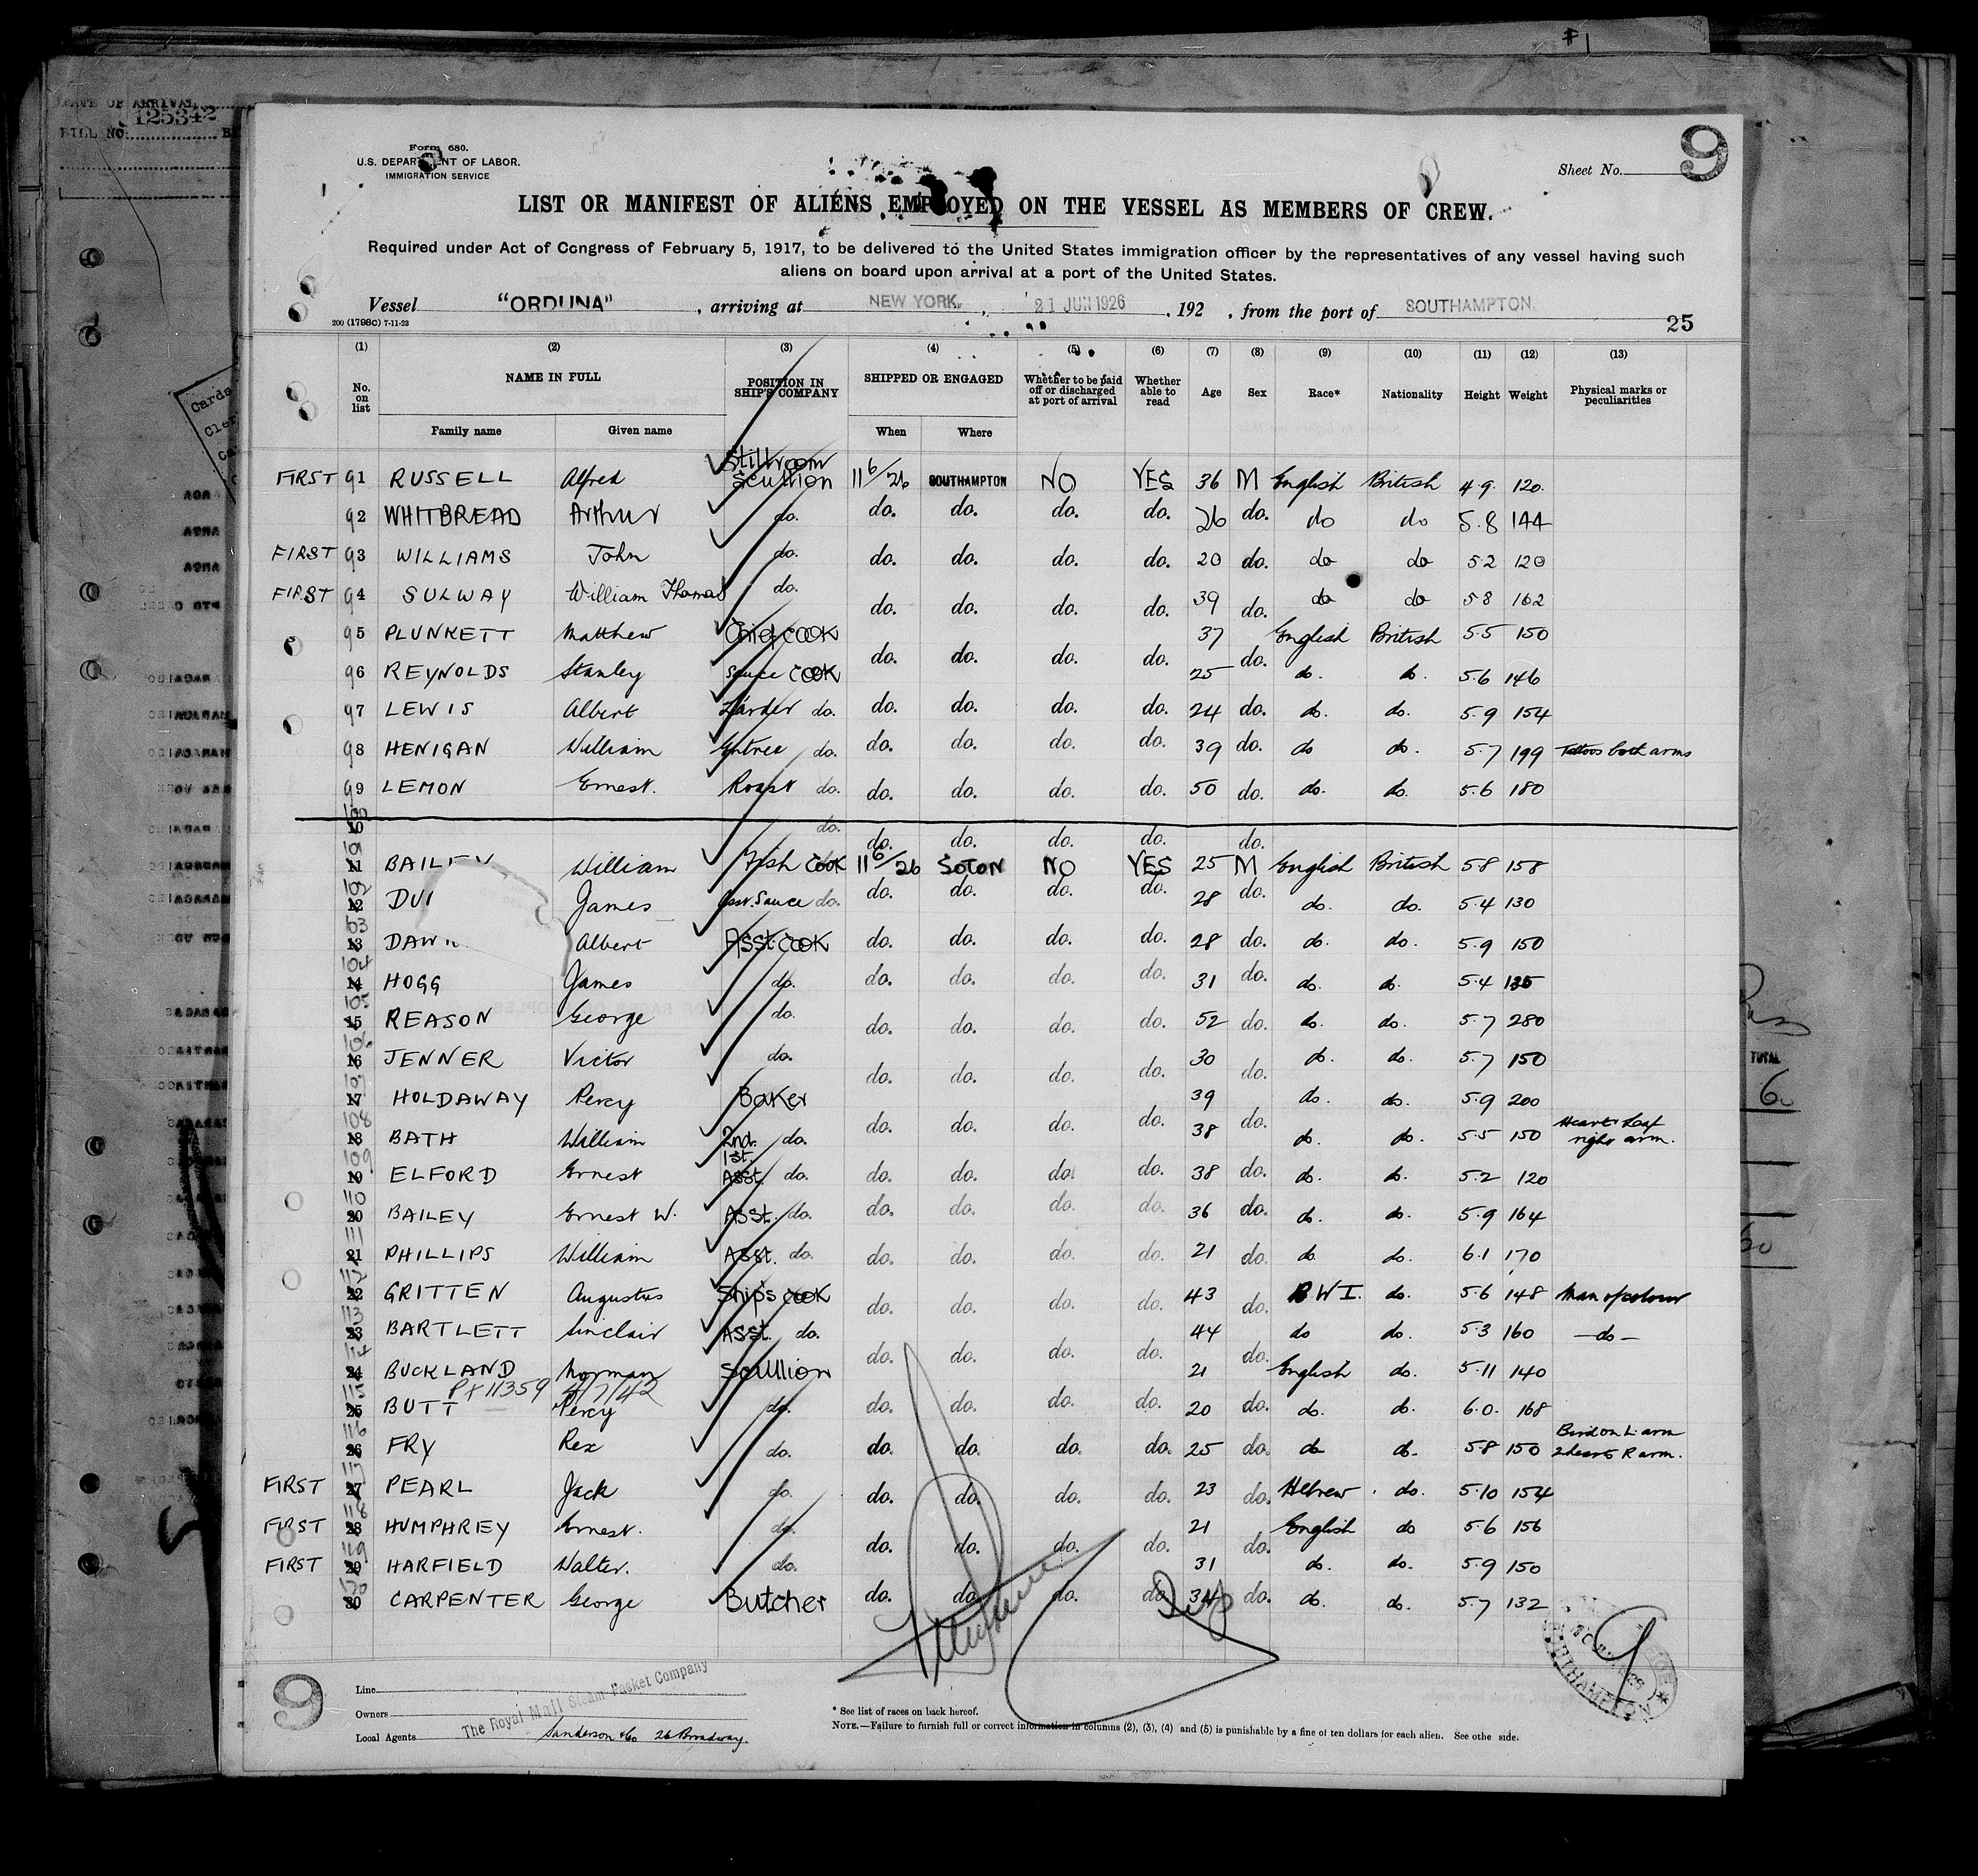 #1
DATE OF ARRIVAL
125342
BILL NO.
Form 680.
U.S. DEPARTMENT OF LABOR.
IMMIGRATION SERVICE
Sheet No. 9
LIST OR MANIFEST OF ALIENS EMPLOYED ON THE VESSEL AS MEMBERS OF CREW.
Required under Act of Congress of February 5, 1917, to be delivered to the United States immigration officer by the representatives of any vessel having such
aliens on board upon arrival at a port of the United States.
Vessel "ORDUNA", arriving at NEW YORK, 21 JUN 1926, 192 , from the port of SOUTHAMPTON.
200 (1798c) 7-11-23
25
(1) (2) (3) (4) (5) (6) (7) (8) (9) (10) (11) (12) (13)
No. on list NAME IN FULL POSITION IN SHIP'S COMPANY SHIPPED OR ENGAGED Whether to be paid off or discharged at port of arrival Whether able to read Age Sex Race* Nationality Height Weight Physical marks or peculiarities
Family name Given name When Where
FIRST 91 RUSSELL Alfred Stillroom Scullion 11 6/26 SOUTHAMPTON NO YES 36 M English British 4.9. 120.
92 WHITBREAD Arthur do. do. do. do. do. 26 do. do do 5.8 144
FIRST 93 WILLIAMS John do. do. do. do. do. 20 do. do do 5 2 120
FIRST 94 SULWAY William Thomas do. do. do. do. do. 39 do. do do 5 8 162
95 PLUNKETT Matthew Chief COOK do. do. do. do. 37 do. English British 5.5 150
96 REYNOLDS Stanley Sauce COOK 25 do. do. 5.6 146
97 LEWIS Albert Larder do. do. do. do. do. 24 do. do. do. 5.9 154
98 HENIGAN William Entree do. do. do. do. do. 39 do. do do. 5.7 199 Tattoos both arms
99 LEMON Ernest. Roast do. do. do. do. do. 50 do. do. do. 5.6 180
100 10 do. do. do. do. do. do.
11 William Fish COOK 11 6/26 SOTON NO YES 25 M English British 5.8 158
12 James Asst. Sauce do. do. do. do. do. 28 do. do. do. 5.4 130
103 13 Albert Asst. COOK do. do. do. do. 28 do. do. do. 5.9 150
104 14 HOGG James do. do. do. do. do. 31 do. do. do. 5.4 135
105 15 REASON George do. do. do. do. do. 52 do. do. do. 5.7 280
106 16 JENNER Victor do. do. do. do. do. 30 do. do. do. 5.7 150
107 17 HOLDAWAY Percy Baker 39 do. do. 5.9 200
108 18 BATH William 2nd. do. do. do. do. do. 38 do. do. do. 5.5 150 right arm.
109 19 ELFORD Ernest 1st. Asst. do. do. do. do. do. 38 do. do. do. 5.2 120
110 20 BAILEY Ernest W. Asst. do. do. do. do. do. 36 do. do. do. 5.9 164
111 21 PHILLIPS William Asst. do. do. do. do. do. 21 do. do. do. 6.1 170
112 22 GRITTEN Augustus Ship's COOK do. do. do. do. 43 do. B W I. do. 5.6 148 Man of colour
113 23 BARTLETT Sinclair Asst. do. 44 do do. 5.3 160 —do—
114 24 BUCKLAND Norman Scullion do. do. do. do. 21 do. English do. 5.11 140
P+ 11359 4/7/42
115 25 BUTT Percy do. do. do. do. do. 20 do. do. do. 6.0. 168
116 26 FRY Rex do. do. do. do. do. 25 do. do do. 5.8 150 Bird on L. arm 2 hearts R arm.
FIRST 117 27 PEARL Jack do. do. do. do. do. 23 do. Hebrew do. 5.10 154
FIRST 118 28 HUMPHREY Ernest. do. do. do. do. do. 21 do. English do 5.6 156
FIRST 119 29 HARFIELD Walter. do. 31 do. do. 5.9 150
120 30 CARPENTER George Butcher do. do. do. do. 34 do. do. do. 5.7 132
9
Line
Owners The Royal Mail Steam Packet Company
Local Agents Sanderson & Co 26 Broadway.
* See list of races on back hereof.
NOTE.—Failure to furnish full or correct information in columns (2), (3), (4) and (5) is punishable by a fine of ten dollars for each alien. See othe side.
SOUTHAMPTON
9
TOTAL
60